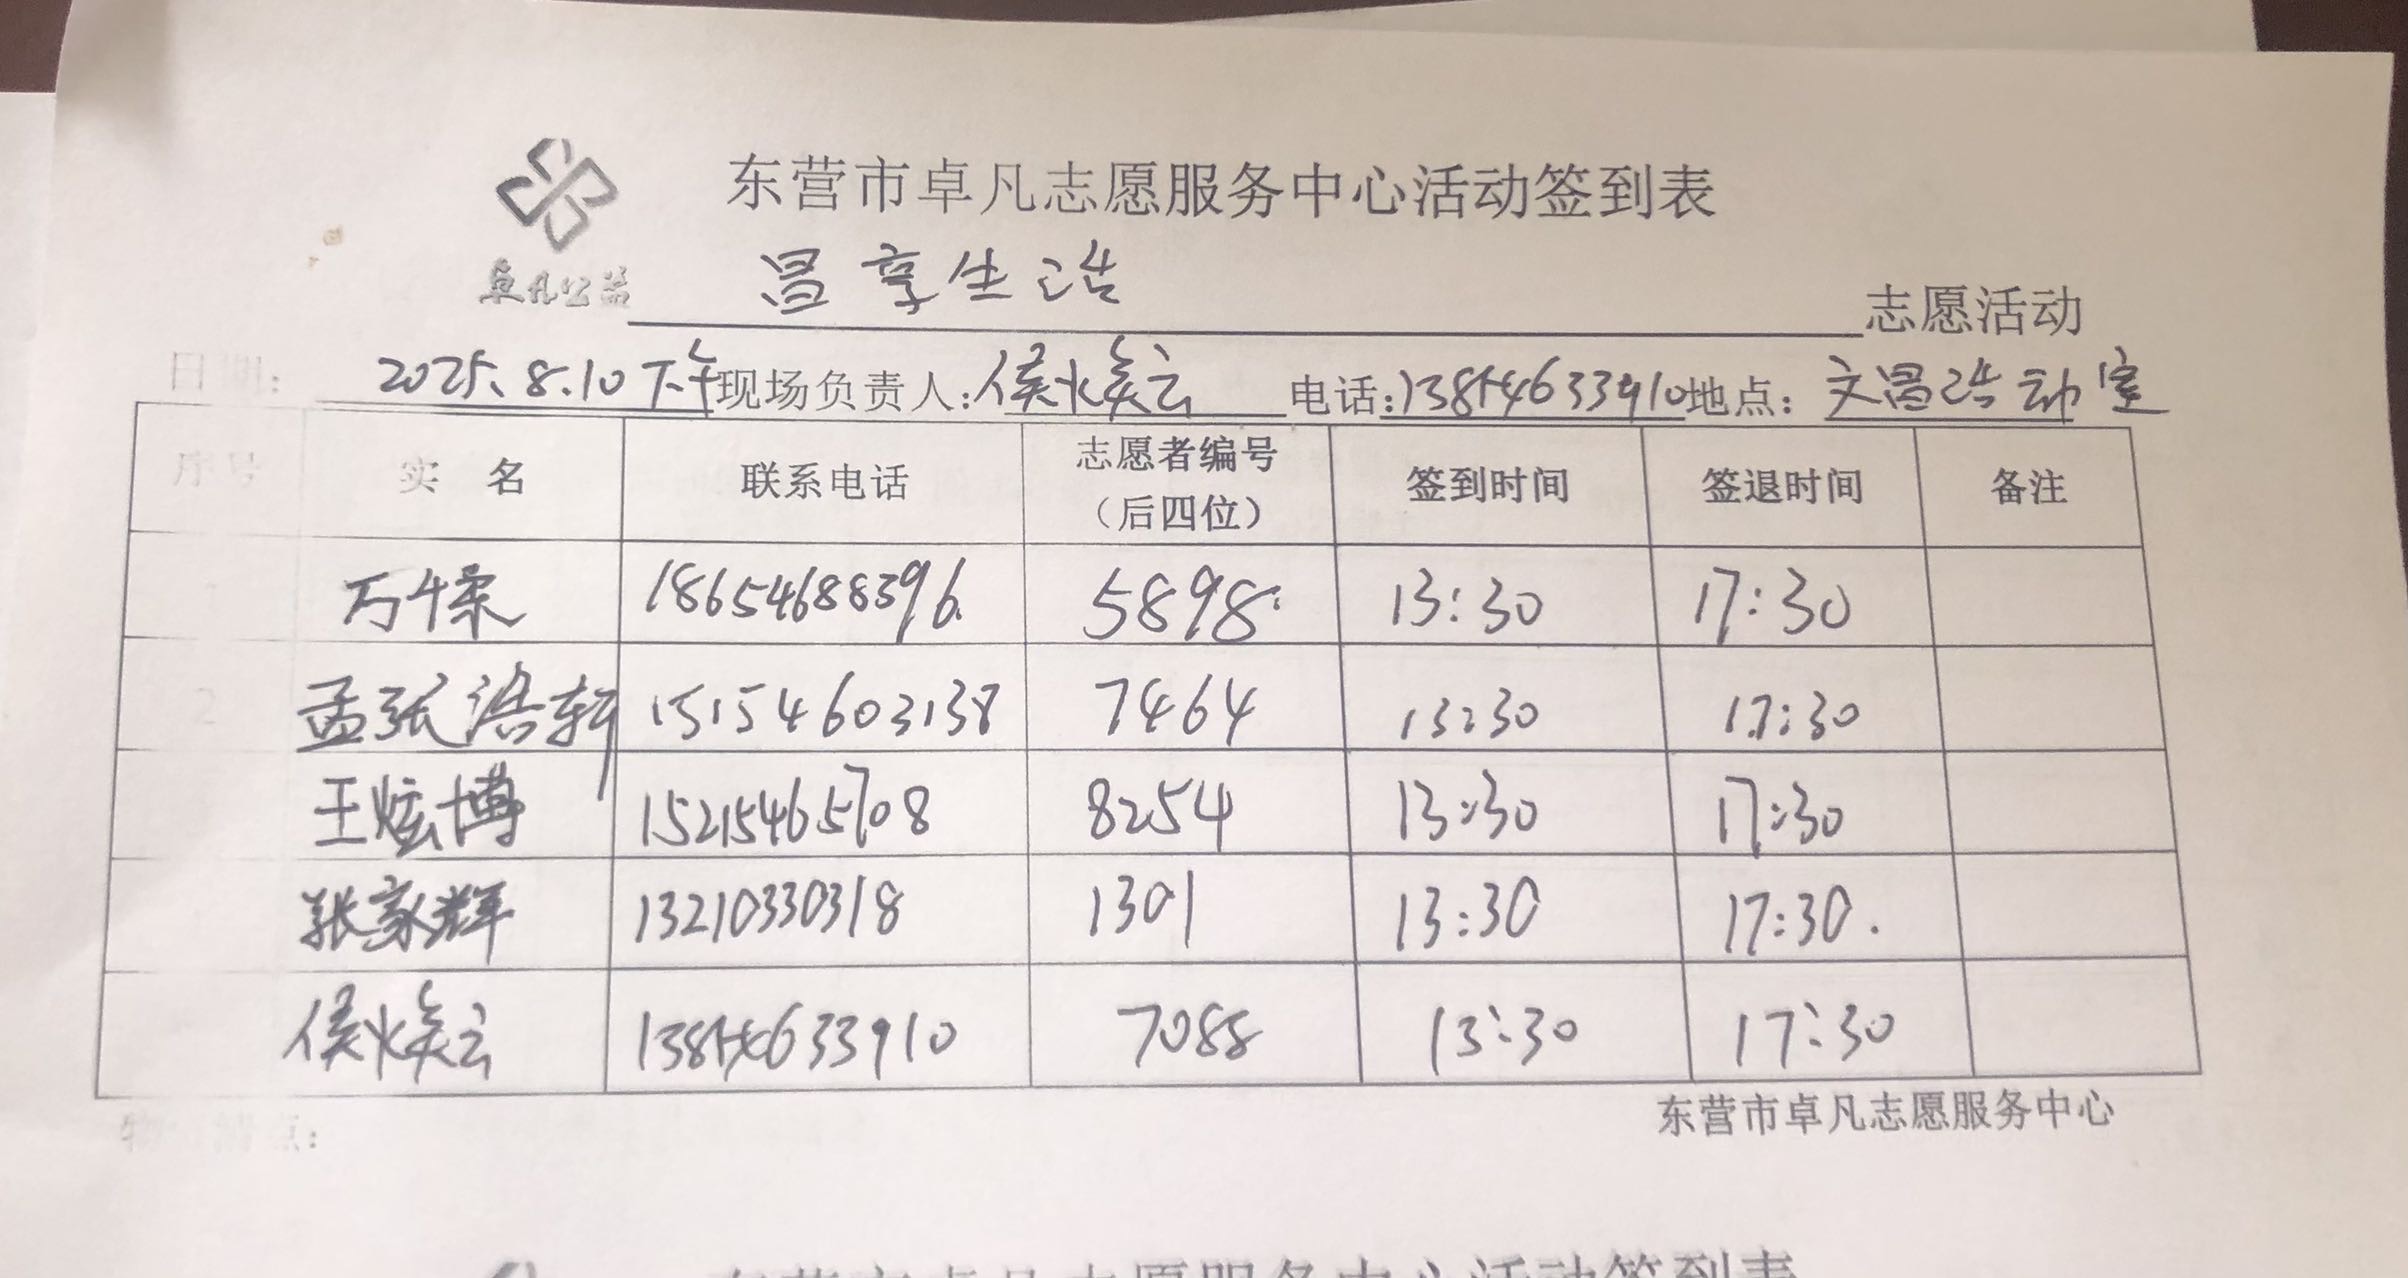 东营市卓凡志愿服务中心活动签到表
卓凡公益 昌享生活 志愿活动
日期: 2025.8.10下午 现场负责人: 侯焕云 电话: 13854633910 地点: 文昌活动室
序号 实 名 联系电话 志愿者编号（后四位） 签到时间 签退时间 备注
1 万千柔 18654688396. 5898 13:30 17:30
2 孟张浩轩 15154603138 7464 13:30 17:30
王炫博 15215465708 8254 13:30 17:30
张家辉 13210330318 1301 13:30 17:30.
侯焕云 13854633910 7088 13:30 17:30
东营市卓凡志愿服务中心
东营市卓凡志愿服务中心活动签到表